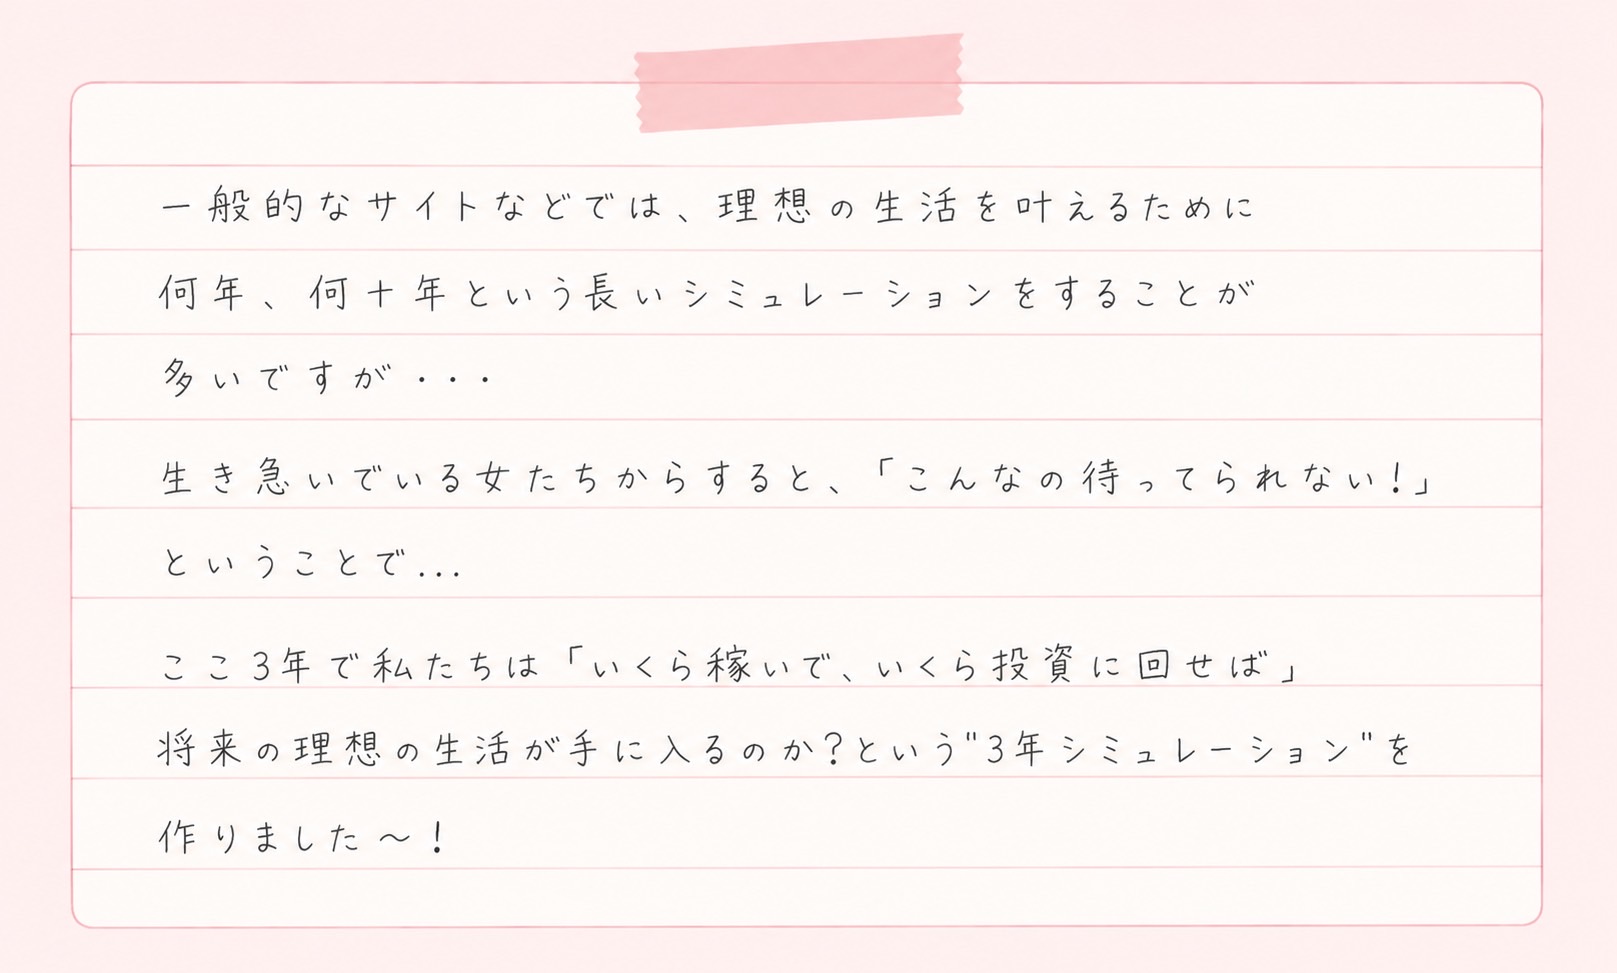 一般的なサイトなどでは、理想の生活を叶えるために
何年、何十年という長いシミュレーションをすることが
多いですが・・・
生き急いでいる女たちからすると、「こんなの待ってられない!」
ということで...
ここ3年で私たちは「いくら稼いで、いくら投資に回せば」
将来の理想の生活が手に入るのか?という"3年シミュレーション"を
作りました〜!